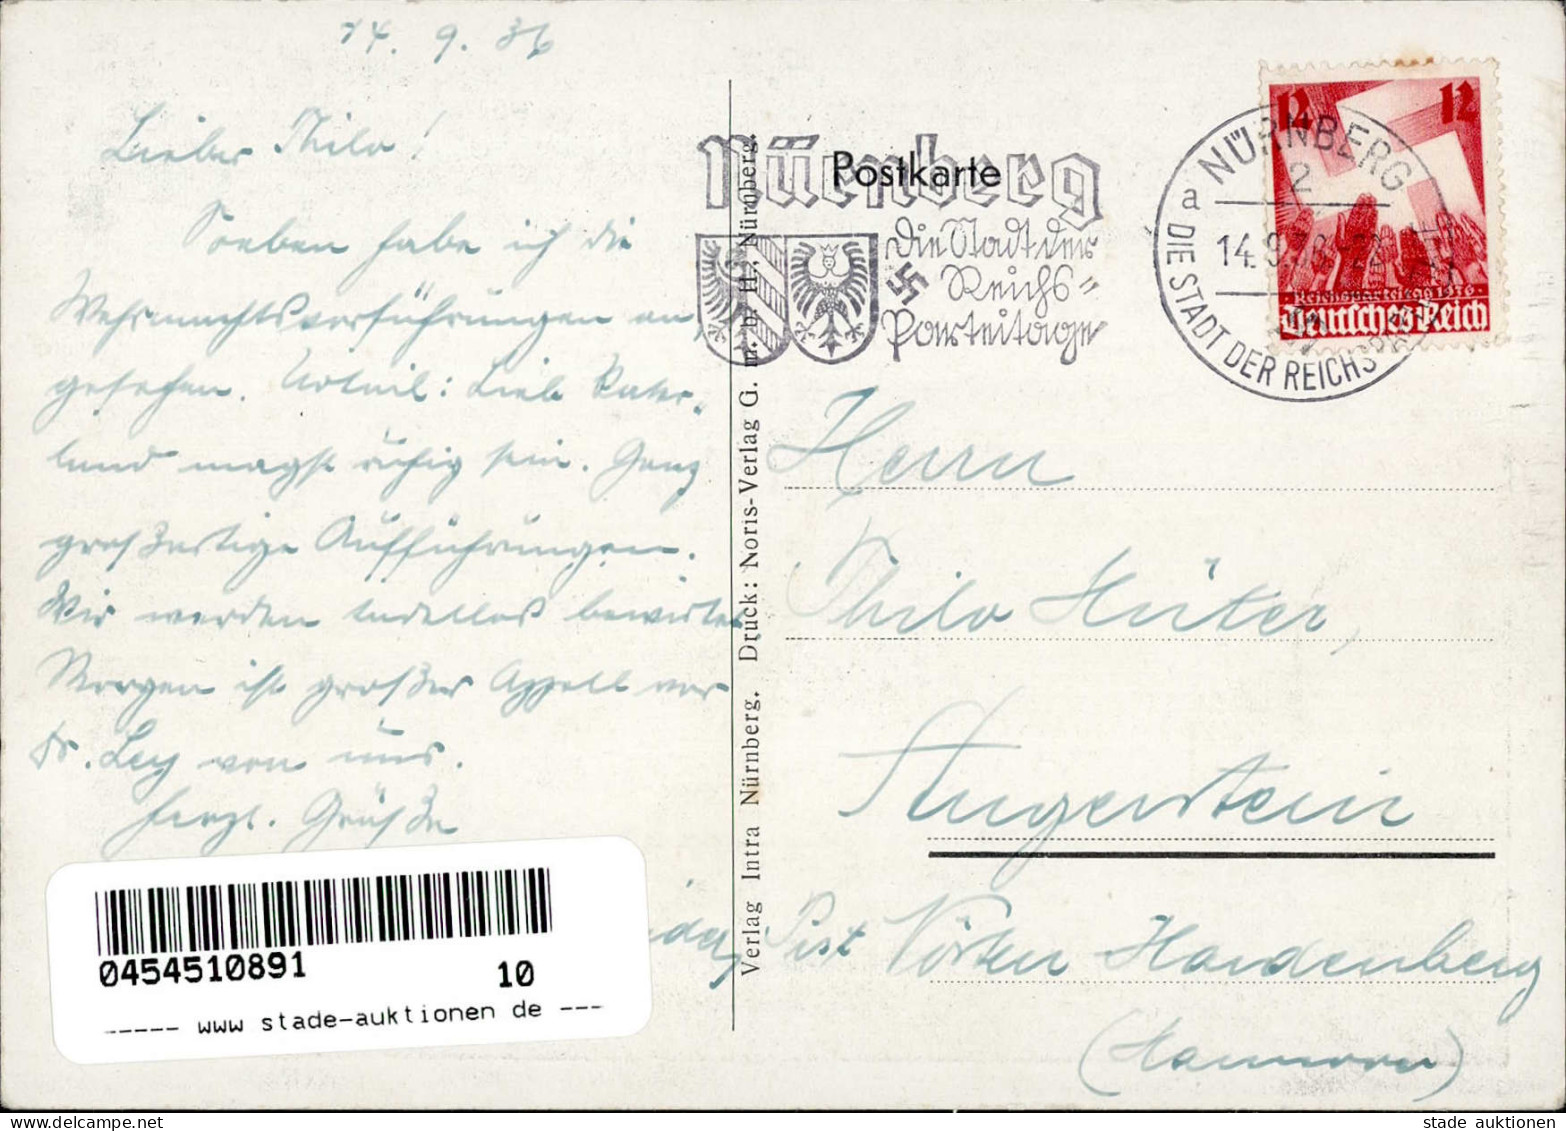 14. 9. 36
Lieber Thilo!
Soeben habe ich die
Wehrmachtsvorführungen an-
gesehen. Urteil: Lieb Vater-
land magst ruhig sein. Ganz
großartige Aufführungen.
Wir werden tadellos bewirtet
Morgen ist großer Appell vor
Dr. Ley von uns.
Herzl. Grüße
0454510891
10
----- www stade-auktionen de ---
Verlag Intra Nürnberg. Druck: Noris-Verlag G. m. b. H., Nürnberg.
Postkarte
Nürnberg
Die Stadt der
Reichs-
Parteitage
NÜRNBERG
2
a
14.9.36
DIE STADT DER REICHSPARTEITAGE
12 12
Reichsparteitag 1936
Deutsches Reich
Herrn
Thilo Hüter,
Angerstein
Post Nörten Hardenberg
(Hannover)
stade auktionen